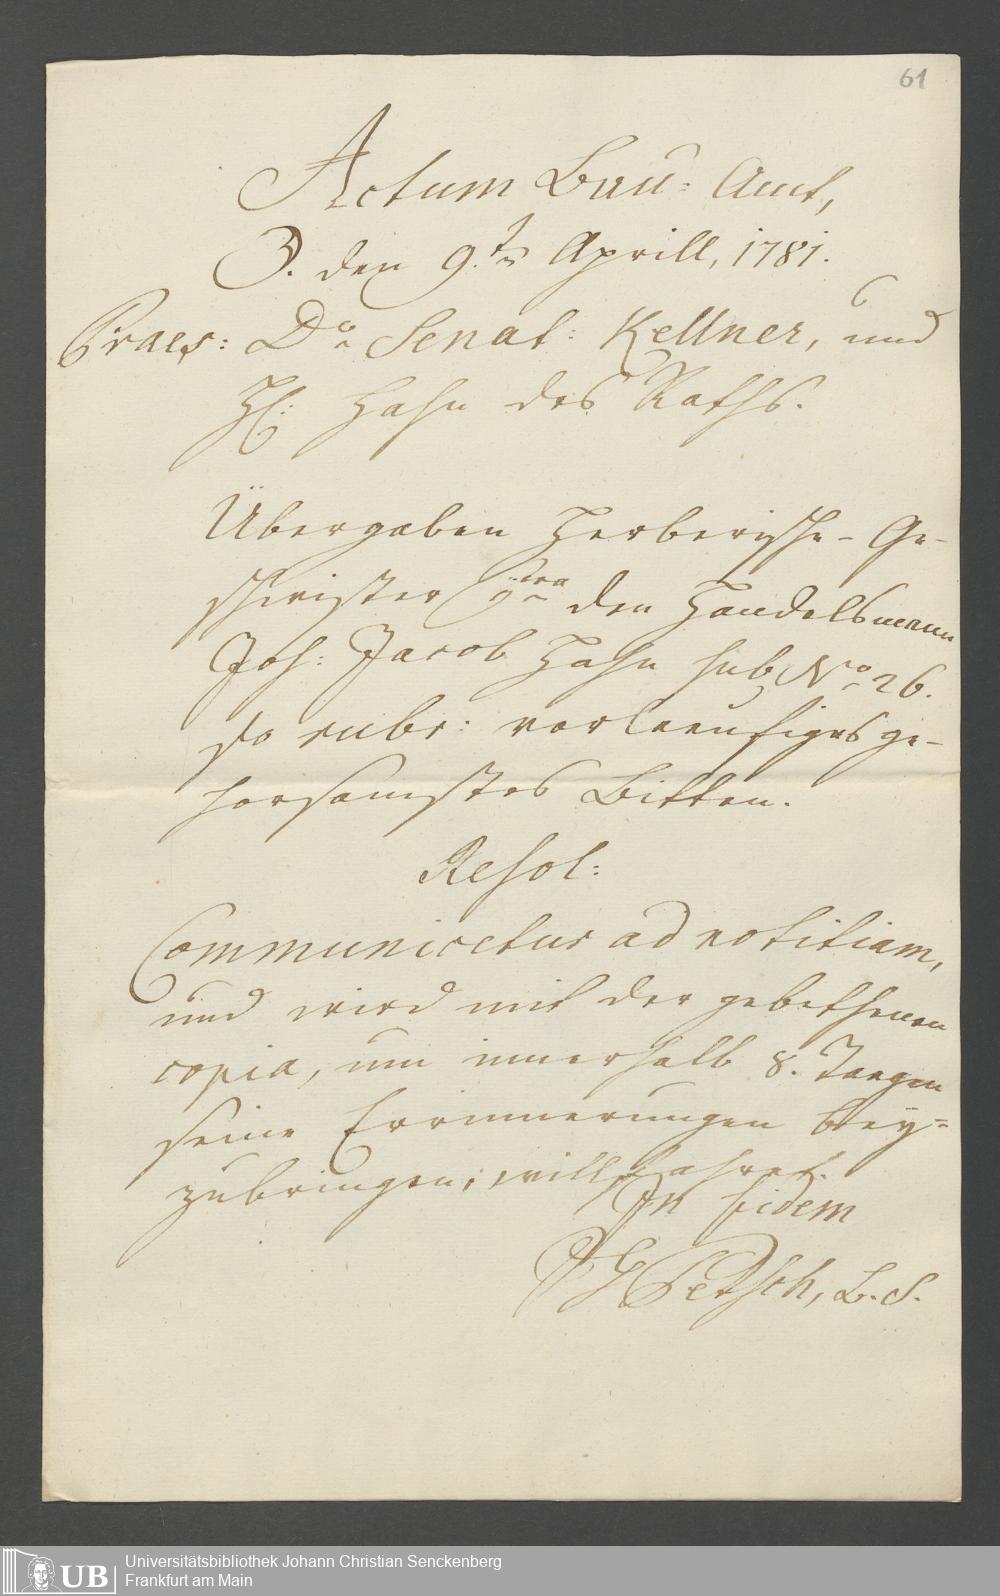 61
Actum Bau: Amt,
den 9.ten Aprill, 1781.
Praes: Dno Senat: Kellner, und
H: Hahn des Raths.
Übergaben Herberische- Ge-
schwister Ctra den Handelsmann
Joh: Jacob Hahn sub No 26.
so rubr: vorlaeufiges ge-
horsamstes Bitten.
Resol:
Communicetur ad notitiam,
und wird mit der gebethenen
copia, um innerhalb 8. Taegen
seine Erinnerungen bey=
zubringen, willfahret.
In fidem
Petsch,
UB
Universitätsbibliothek Johann Christian Senckenberg
Frankfurt am Main